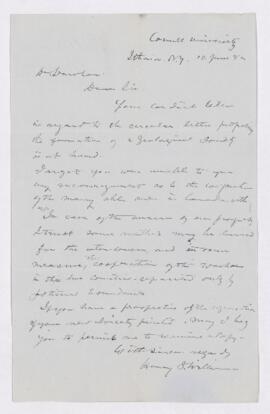 Cornell University
Ithaca, N.Y. 10 June 82
Dr Dawson
Dear Sir
Your candid letter
in regard to the circular letter proposing
the formation of a Geological Society
is at hand.
I regret you were unable to give
any encouragement as to the cooperation
of the many able men in Canada with
us.
In case of the success of our project
I trust some method may be devised
for the intercourse, and in some
measure, the cooperation of the workers
in the two countries separated only by
political boundaries.
If you have a prospectus of the organization
of your new Society printed, may I beg
you to permit me to receive a copy.
With sincere regards
Henry S. Williams